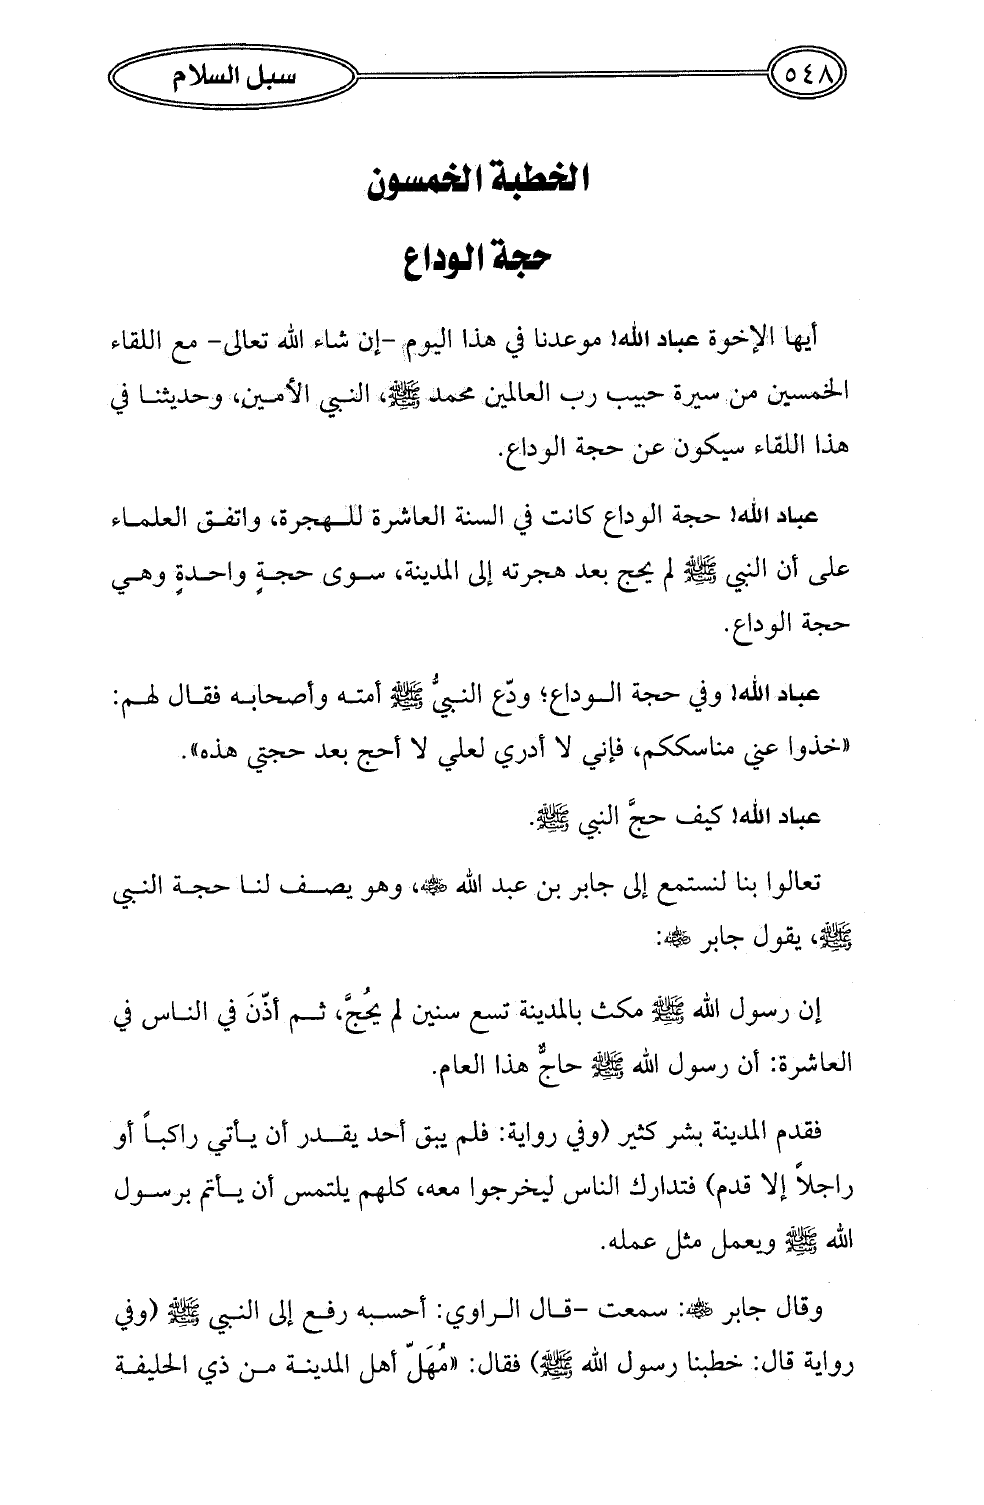 ٥٤٨
سبل السلام
الخطبة الخمسون
حجة الوداع
أيها الإخوة عباد الله! موعدنا في هذا اليوم -إن شاء الله تعالى- مع اللقاء
الخمسين من سيرة حبيب رب العالمين محمد ﷺ، النبي الأمين، وحديثنا في
هذا اللقاء سيكون عن حجة الوداع.
عباد الله! حجة الوداع كانت في السنة العاشرة للهجرة، واتفق العلماء
على أن النبي ﷺ لم يحج بعد هجرته إلى المدينة، سوى حجةٍ واحدةٍ وهي
حجة الوداع.
عباد الله! وفي حجة الوداع؛ ودّع النبيُّ ﷺ أمته وأصحابه فقال لهم:
«خذوا عني مناسككم، فإني لا أدري لعلي لا أحج بعد حجتي هذه».
عباد الله! كيف حجَّ النبي ﷺ.
تعالوا بنا لنستمع إلى جابر بن عبد الله ﷺ، وهو يصف لنا حجة النبي
ﷺ، يقول جابر رضي الله عنه:
إن رسول الله ﷺ مكث بالمدينة تسع سنين لم يحُجَّ، ثم أذّنَ في الناس في
العاشرة: أن رسول الله ﷺ حاجٌّ هذا العام.
فقدم المدينة بشر كثير (وفي رواية: فلم يبق أحد يقدر أن يأتي راكباً أو
راجلاً إلا قدم) فتدارك الناس ليخرجوا معه، كلهم يلتمس أن يأتم برسول
الله ﷺ ويعمل مثل عمله.
وقال جابر رضي الله عنه: سمعت -قال الراوي: أحسبه رفع إلى النبي ﷺ (وفي
رواية قال: خطبنا رسول الله ﷺ) فقال: «مُهَلّ أهل المدينة من ذي الحليفة